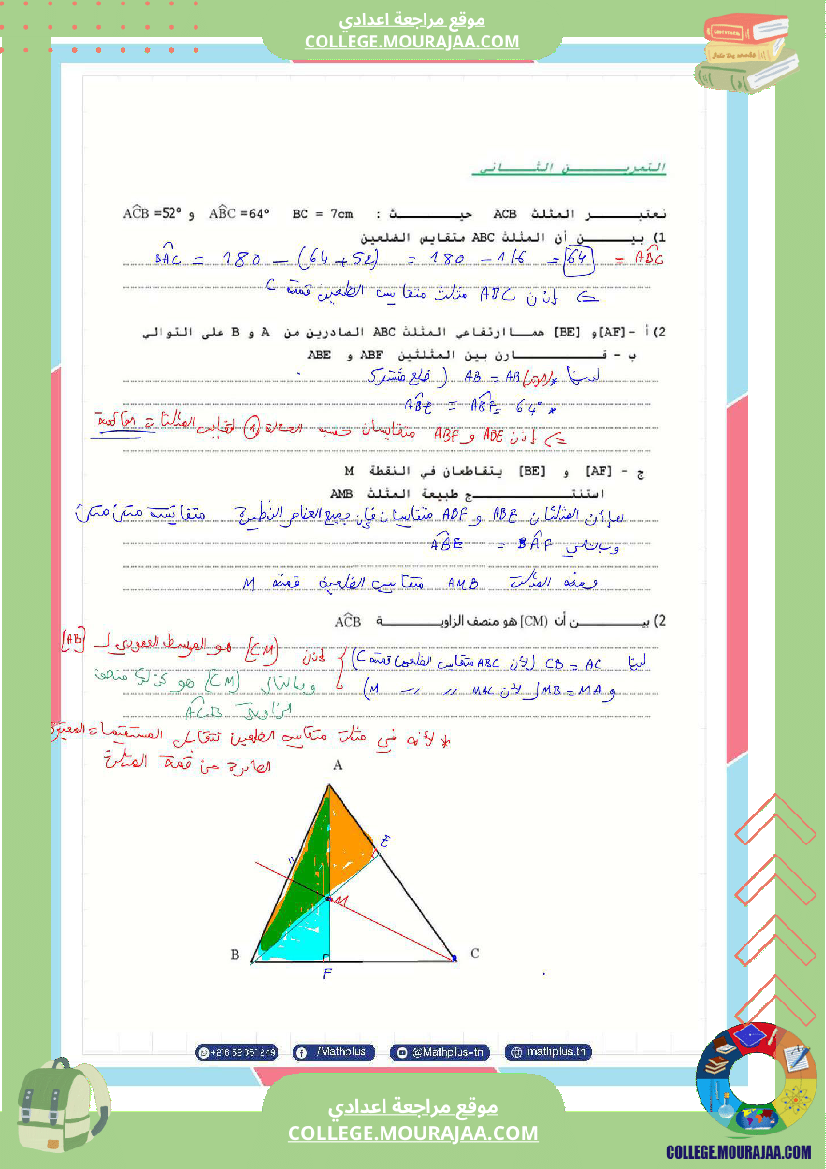 موقع مراجعة اعدادي
COLLEGE.MOURAJAA.COM
التمريـــن الثـــاني
نعتبـــر المثلث ACB حيـــث : BC = 7cm ABC =64° و ACB =52°
1) بيـــن أن المثلث ABC متقايس الضلعين
BAC = 180 - (64 + 52) = 180 - 116 = 64 = ABC
⇐ إذن ABC مثلث متقايس الضلعين قمته C
2) أ -[AF] و [BE] همـــا ارتفاعي المثلث ABC الصادرين من A و B على التوالي
ب - قـــارن بين المثلثين ABF و ABE
لدينا AB = AB ( ضلع مشترك
* ABE = ABF = 64°
⇐ إذن ABE و ABF متقايسان حسب الحالة 1 لتقايس المثلثات القائمة
ج - [AF] و [BE] يتقاطعان في النقطة M
استنتـــج طبيعة المثلث AMB
بما أن المثلثان ABE و ABF متقايسان فإن جميع العناصر النظيرة متقايسة مثنى مثنى
وبالتالي ABE = BAF
ومنه المثلث AMB متقايس الضلعين قمته M
2) بيـــن أن [CM) هو منصف الزاويـــة ACB
لدينا CB = AC (لأن ABC متقايس الضلعين قمته C) إذن [CM) هو الموسط العمودي لـ [AB]
و MB = MA لأن M) وبالتالي [CM) هو كذلك منصف
الزاوية ACB
* لأنه في مثلث متقايس الضلعين تتقابل المستقيمات المميزة
الصادرة من قمة المثلث
A
E
M
B
C
F
/Mathplus
@Mathplus-tn
mathplus.tn
موقع مراجعة اعدادي
COLLEGE.MOURAJAA.COM
COLLEGE.MOURAJAA.COM